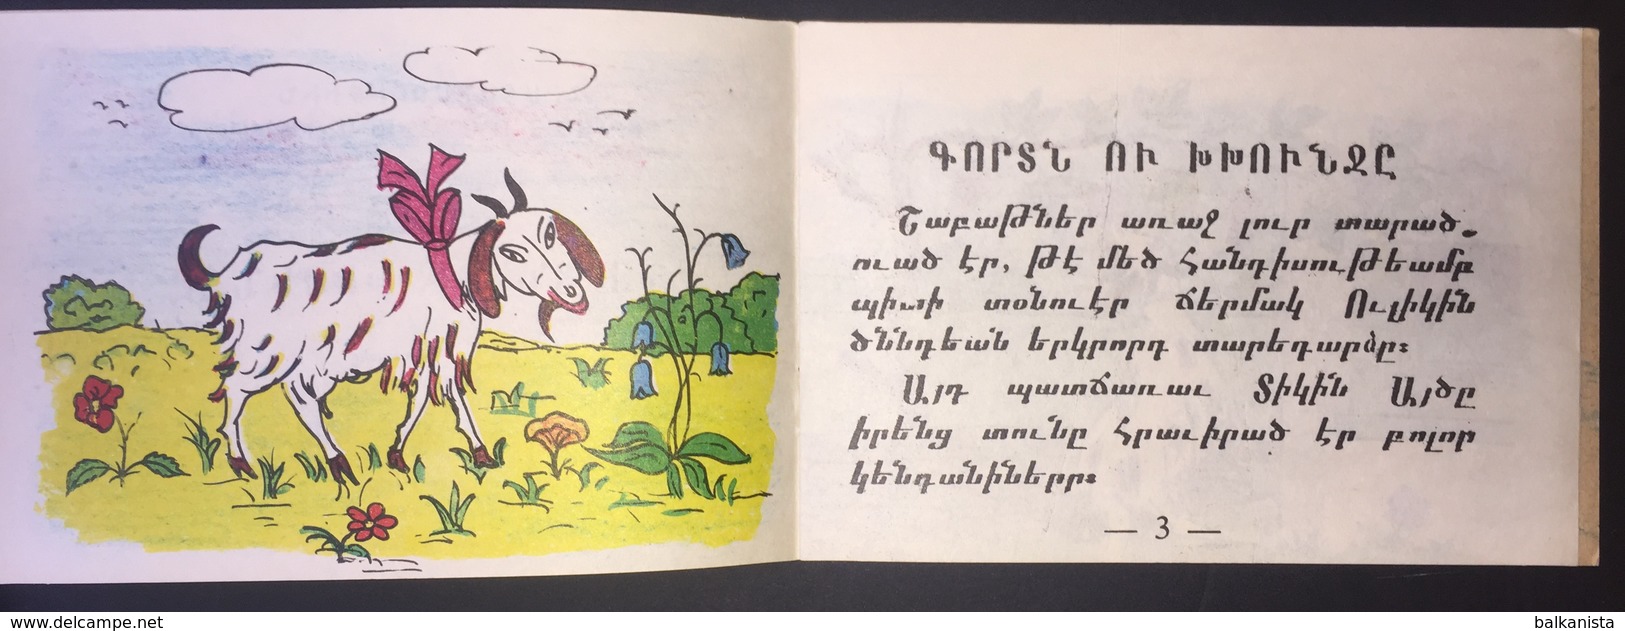 ԳՈՐՏՆ ՈՒ ԽԽՈՒՆՋԸ
Շաբաթներ առաջ լուր տարած-
ուած էր, թէ մեծ հանդիսութեամբ
պիտի տօնուէր ճերմակ Ուլիկին
ծննդեան երկրորդ տարեդարձը։
Այդ պատճառաւ Տիկին Այծը
իրենց տունը հրաւիրած էր բոլոր
կենդանիները։
— 3 —
www.delcampe.net
balkanista